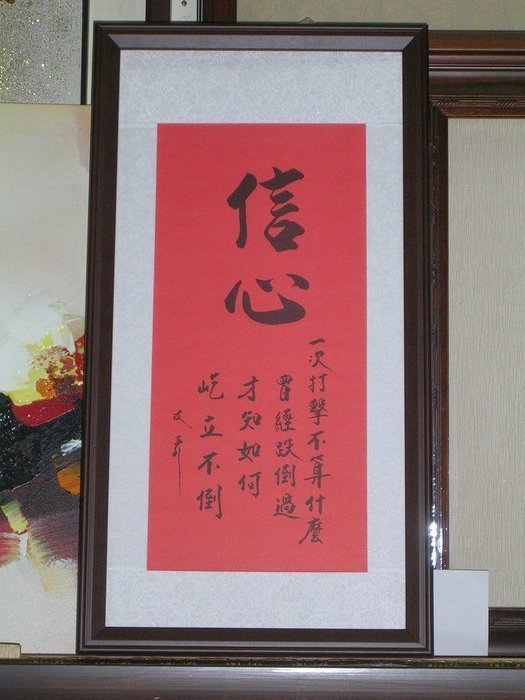 信心
一次打擊不算什麼
曾經跌倒過
才知如何
屹立不倒